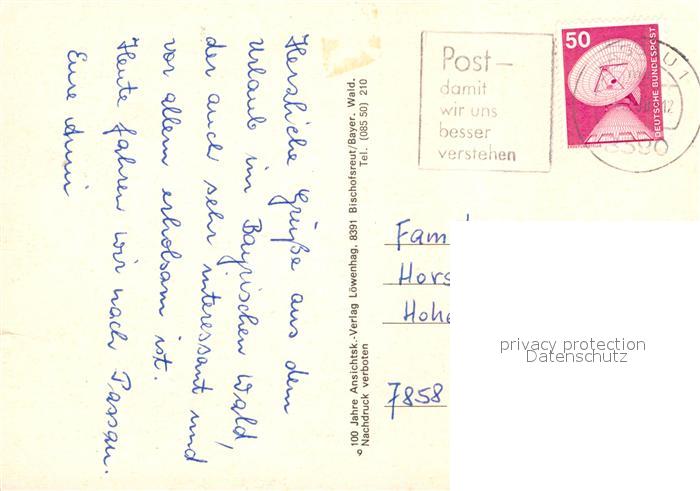 Herzliche Grüße aus dem
Urlaub im Bayrischen Wald,
der auch sehr interessant und
vor allem erholsam ist.
Heute fahren wir nach Passau.
Eure Anni
© 100 Jahre Ansichtsk.-Verlag Löwenhag, 8391 Bischofsreut/Bayer. Wald.
Nachdruck verboten
Tel. (085 50) 210
Post –
damit
wir uns
besser
verstehen
50
DEUTSCHE BUNDESPOST
8390
Fam
Hors
Hohe
7858
privacy protection
Datenschutz